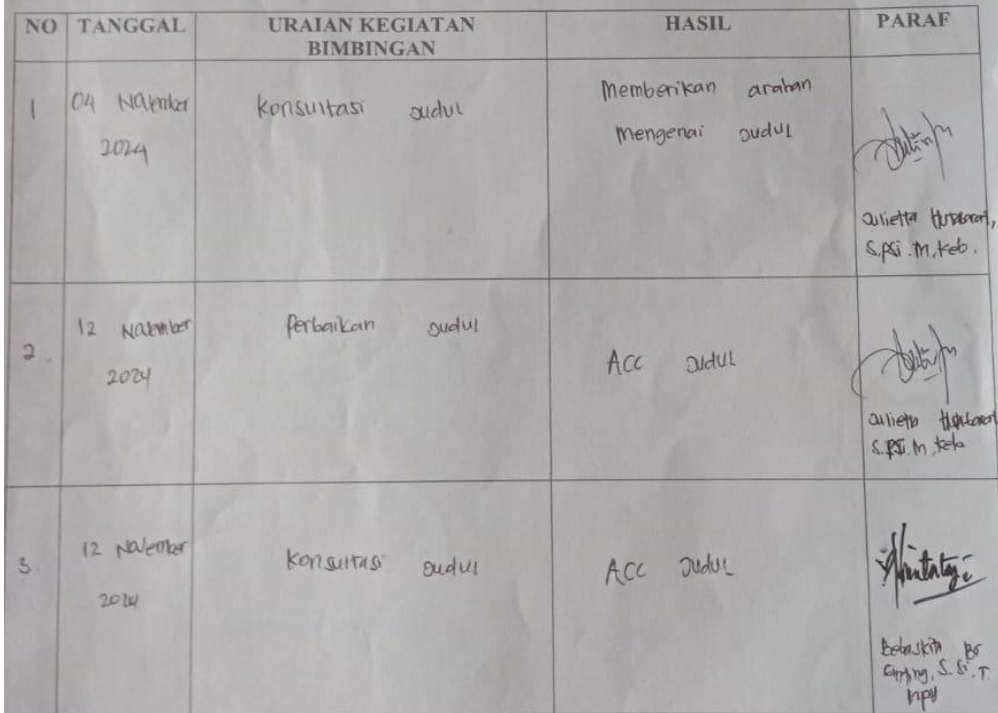 NO TANGGAL URAIAN KEGIATAN BIMBINGAN HASIL PARAF
1 04 November 2024 Konsultasi Judul Memberikan arahan Mengenai Judul
Julietta Hutabarat,
S.Psi.M.Keb.
2. 12 November 2024 Perbaikan Judul ACC Judul
Julietta Hutabarat
S.PSi.M.Keb
3. 12 November 2024 Konsultasi Judul ACC Judul
Br
S.Si.T